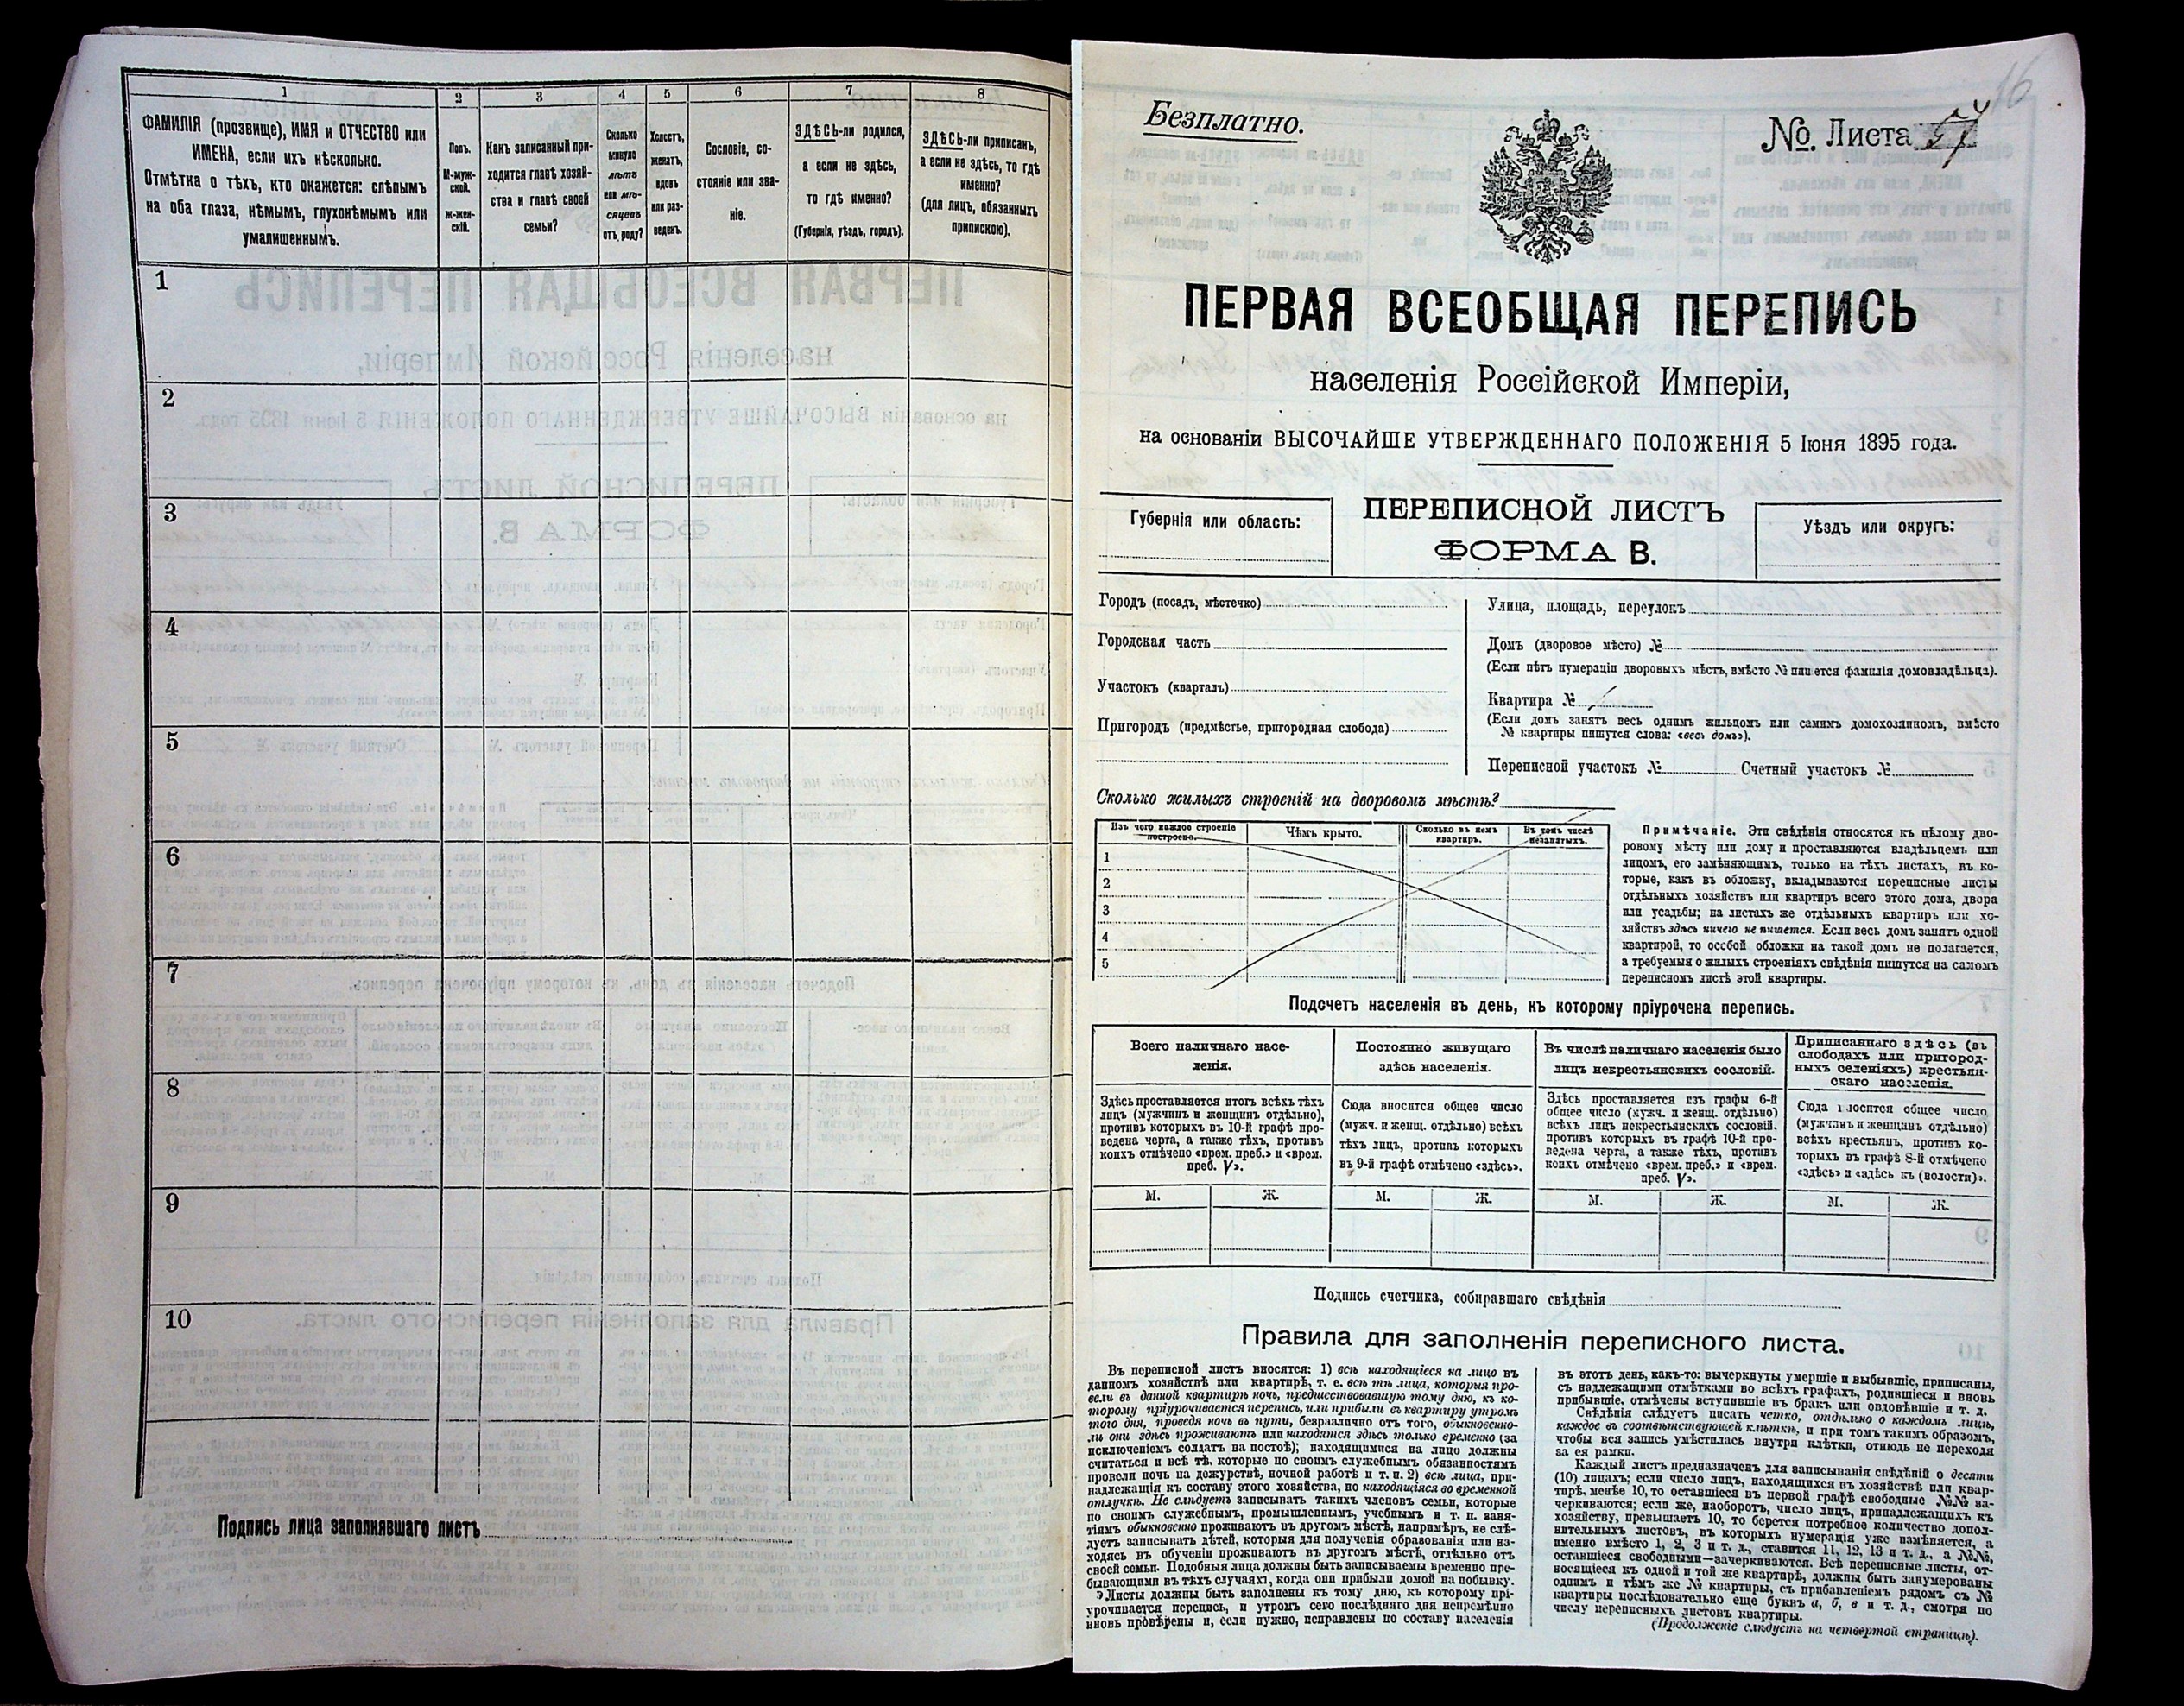 1
ФАМИЛІЯ (прозвище), ИМЯ и ОТЧЕСТВО или
ИМЕНА, если ихъ нѣсколько.
Отмѣтка о тѣхъ, кто окажется: слѣпымъ
на оба глаза, нѣмымъ, глухонѣмымъ или
умалишеннымъ.
2
Полъ.
М-муж-
ской.
ж-жен-
скій.
3
Какъ записанный при-
ходится главѣ хозяй-
ства и главѣ своей
семьи?
4
Сколько
минуло
лѣтъ
или мѣ-
сяцевъ
отъ роду?
5
Холостъ,
женатъ,
вдовъ
или раз-
веденъ.
6
Сословіе, со-
стояніе или зва-
ніе.
7
ЗДѢСЬ-ли родился,
а если не здѣсь,
то гдѣ именно?
(Губернія, уѣздъ, городъ).
8
ЗДѢСЬ-ли приписанъ,
а если не здѣсь, то гдѣ
именно?
(для лицъ, обязанныхъ
припискою).
1
2
3
4
5
6
7
8
9
10
Подпись лица заполнявшаго листъ
16
Безплатно.
№. Листа 57
ПЕРВАЯ ВСЕОБЩАЯ ПЕРЕПИСЬ
населенія Россійской Имперіи,
на основаніи ВЫСОЧАЙШЕ УТВЕРЖДЕННАГО ПОЛОЖЕНІЯ 5 Іюня 1895 года.
Губернія или область:
ПЕРЕПИСНОЙ ЛИСТЪ
ФОРМА В.
Уѣздъ или округъ:
Городъ (посадъ, мѣстечко)
Городская часть
Участокъ (кварталъ)
Пригородъ (предмѣстье, пригородная слобода)
Улица, площадь, переулокъ
Домъ (дворовое мѣсто) №
(Если нѣтъ нумераціи дворовыхъ мѣстъ, вмѣсто № пишется фамилія домовладѣльца).
Квартира №
(Если домъ занятъ весь однимъ жильцомъ или самимъ домохозяиномъ, вмѣсто
№ квартиры пишутся слова: «весь домъ»).
Переписной участокъ № Счетный участокъ №
Сколько жилыхъ строеній на дворовомъ мѣстѣ?
Изъ чего каждое строеніе
построено.
Чѣмъ крыто.
Сколько въ немъ
квартиръ.
Въ томъ числѣ
незанятыхъ.
1
2
3
4
5
Примѣчаніе. Эти свѣдѣнія относятся къ цѣлому дво-
ровому мѣсту или дому и проставляются владѣльцемъ или
лицомъ, его замѣняющимъ, только на тѣхъ листахъ, въ ко-
торые, какъ въ обложку, вкладываются переписные листы
отдѣльныхъ хозяйствъ или квартиръ всего этого дома, двора
или усадьбы; на листахъ же отдѣльныхъ квартиръ или хо-
зяйствъ здѣсь ничего не пишется. Если весь домъ занятъ одной
квартирой, то особой обложки на такой домъ не полагается,
а требуемыя о жилыхъ строеніяхъ свѣдѣнія пишутся на самомъ
переписномъ листѣ этой квартиры.
Подсчетъ населенія въ день, къ которому пріурочена перепись.
Всего наличнаго насе-
ленія.
Здѣсь проставляется итогъ всѣхъ тѣхъ
лицъ (мужчинъ и женщинъ отдѣльно),
противъ которыхъ въ 10-й графѣ про-
ведена черта, а также тѣхъ, противъ
коихъ отмѣчено «врем. преб.» и «врем.
преб. V».
М. Ж.
Постоянно живущаго
здѣсь населенія.
Сюда вносится общее число
(мужч. и женщ. отдѣльно) всѣхъ
тѣхъ лицъ, противъ которыхъ
въ 9-й графѣ отмѣчено «здѣсь».
М. Ж.
Въ числѣ наличнаго населенія было
лицъ некрестьянскихъ сословій.
Здѣсь проставляется изъ графы 6-й
общее число (мужч. и женщ. отдѣльно)
всѣхъ лицъ некрестьянскихъ сословій.
противъ которыхъ въ графѣ 10-й про-
ведена черта, а также тѣхъ, противъ
коихъ отмѣчено «врем. преб.» и «врем.
преб. V».
М. Ж.
Приписаннаго здѣсь (въ
слободахъ или пригород-
ныхъ селеніяхъ) крестьян-
скаго населенія.
Сюда вносится общее число
(мужчинъ и женщинъ отдѣльно)
всѣхъ крестьянъ, противъ ко-
торыхъ въ графѣ 8-й отмѣчено
«здѣсь» и «здѣсь къ (волости)».
М. Ж.
Подпись счетчика, собиравшаго свѣдѣнія
Правила для заполненія переписного листа.
Въ переписной листъ вносятся: 1) всѣ находящіеся на лицо въ
данномъ хозяйствѣ или квартирѣ, т. е. всѣ тѣ лица, которыя про-
вели въ данной квартирѣ ночь, предшествовавшую тому дню, къ ко-
торому пріурочивается перепись, или прибыли въ квартиру утромъ
того дня, проведя ночь въ пути, безразлично отъ того, обыкновенно-
ли они здѣсь проживаютъ или находятся здѣсь только временно (за
исключеніемъ солдатъ на постоѣ); находящимися на лицо должны
считаться и всѣ тѣ, которые по своимъ служебнымъ обязанностямъ
провели ночь на дежурствѣ, ночной работѣ и т. п. 2) всѣ лица, при-
надлежащія къ составу этого хозяйства, но находящіяся во временной
отлучкѣ. Не слѣдуетъ записывать такихъ членовъ семьи, которые
по своимъ служебнымъ, промышленнымъ, учебнымъ и т. п. заня-
тіямъ обыкновенно проживаютъ въ другомъ мѣстѣ, напримѣръ, не слѣ-
дуетъ записывать дѣтей, которыя для полученія образованія или на-
ходясь въ обученіи проживаютъ въ другомъ мѣстѣ, отдѣльно отъ
своей семьи. Подобныя лица должны быть записываемы временно пре-
бывающими въ тѣхъ случаяхъ, когда они прибыли домой на побывку.
Листы должны быть заполнены къ тому дню, къ которому прі-
урочивается перепись, и утромъ сего послѣдняго дня непремѣнно
вновь провѣрены и, если нужно, исправлены по составу населенія
въ этотъ день, какъ-то: вычеркнуты умершіе и выбывшіе, приписаны,
съ надлежащими отмѣтками во всѣхъ графахъ, родившіеся и вновь
прибывшіе, отмѣчены вступившіе въ бракъ или овдовѣвшіе и т. д.
Свѣдѣнія слѣдуетъ писать четко, отдѣльно о каждомъ лицѣ,
каждое въ соотвѣтствующей клѣткѣ, и при томъ такимъ образомъ,
чтобы вся запись умѣстилась внутри клѣтки, отнюдь не переходя
за ея рамки.
Каждый листъ предназначенъ для записыванія свѣдѣній о десяти
(10) лицахъ; если число лицъ, находящихся въ хозяйствѣ или квар-
тирѣ, менѣе 10, то оставшіеся въ первой графѣ свободные №№ за-
черкиваются; если же, наоборотъ, число лицъ, принадлежащихъ къ
хозяйству, превышаетъ 10, то берется потребное количество допол-
нительныхъ листовъ, въ которыхъ нумерація уже измѣняется, а
именно вмѣсто 1, 2, 3 и т. д., ставится 11, 12, 13 и т. д., а №№,
оставшіеся свободными—зачеркиваются. Всѣ переписные листы, от-
носящіеся къ одной и той же квартирѣ, должны быть занумерованы
однимъ и тѣмъ же № квартиры, съ прибавленіемъ рядомъ съ №
квартиры послѣдовательно еще буквъ а, б, в и т. д., смотря по
числу переписныхъ листовъ квартиры.
(Продолженіе слѣдуетъ на четвертой страницѣ).